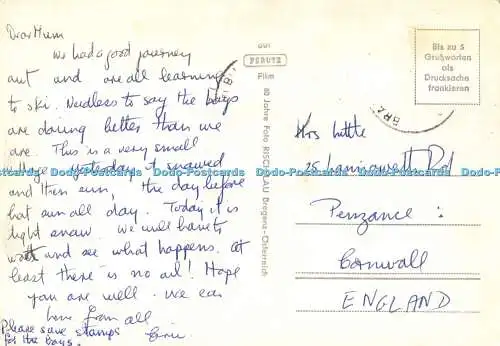 Dear Mum
we had a good journey
out and are all learning
to ski. Needless to say the boys
are doing better than we
are. This is a very small
village yesterday it snowed
and then sun, the day before
hot sun all day. Today it is
light snow. We will have to
wait and see what happens. At
least there is no oil! Hope
you are well. We are
Love from all
Please save stamps
for the boys.
auf
PERUTZ
Film
80 Jahre Foto RISCH-LAU Bregenz-Österreich
Bis zu 5
Grußworten
als
Drucksache
frankieren
BRA
Mrs Little
25 Rd
Penzance:
Cornwall
ENGLAND
Dodo-Postcards Dodo-Postcards Dodo-Postcards Dodo-Postcards Dodo-Postcards